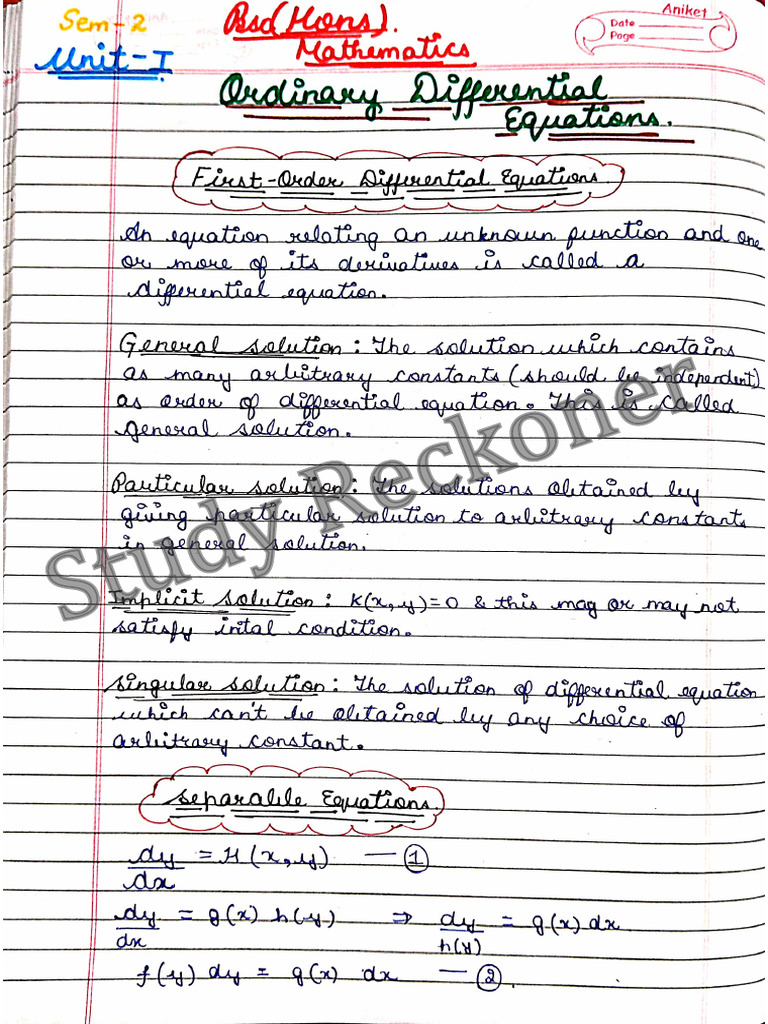 Sem-2
Bsc(Hons).
Mathematics
Aniket
Date
Page
Unit-I
Ordinary Differential
Equations.
First-Order Differential Equations.
An equation relating an unknown function and one
or more of its derivatives is called a
differential equation.
General solution: The solution which contains
as many arbitrary constants (should be independent)
as order of differential equation. This is called
general solution.
Particular solution: The solutions obtained by
giving particular solution to arbitrary constants
in general solution.
Implicit solution: K(x,y)=0 & this mag or may not
satisfy intal condition.
Singular solution: The solution of differential equation
which can't be obtained by any choice of
arbitrary constant.
Separable Equations.
dy/dx = H(x,y) — ①
dy/dx = g(x) h(y) ⇒ dy/h(y) = g(x) dx
f(y) dy = g(x) dx — ②.
Study Reckoner